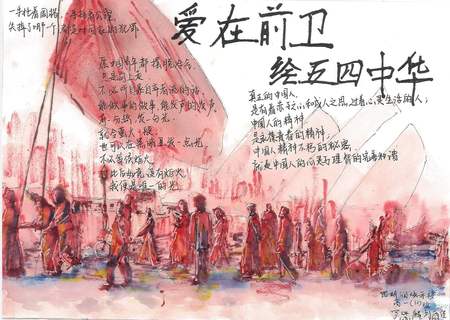 爱在前卫
绘五四中华
愿中国青年都摆脱冷气，
只是向上走
不必听自暴自弃者流的话。
能做事的做事，能发声的发声。
有一分热，发一分光，
就令萤火一般，
也可以在黑暗里发一点光，
不必等候炬火
此后如竟没有炬火，
我便是唯一的光
真正的中国人，
是有着赤子之心和成人之思，过着心灵生活的人；
中国人的精神
是永葆青春的精神，
中国人精神不朽的秘密，
就是中国人的心灵与理智的完美和谐